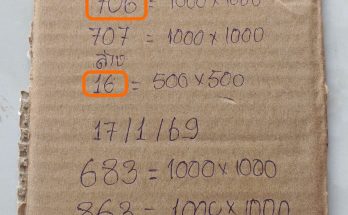 706 = 1000 × 1000
707 = 1000 × 1000
ล่าง
16 = 500 × 500
17/1/69
683 = 1000 × 1000
863 = 1000 × 1000